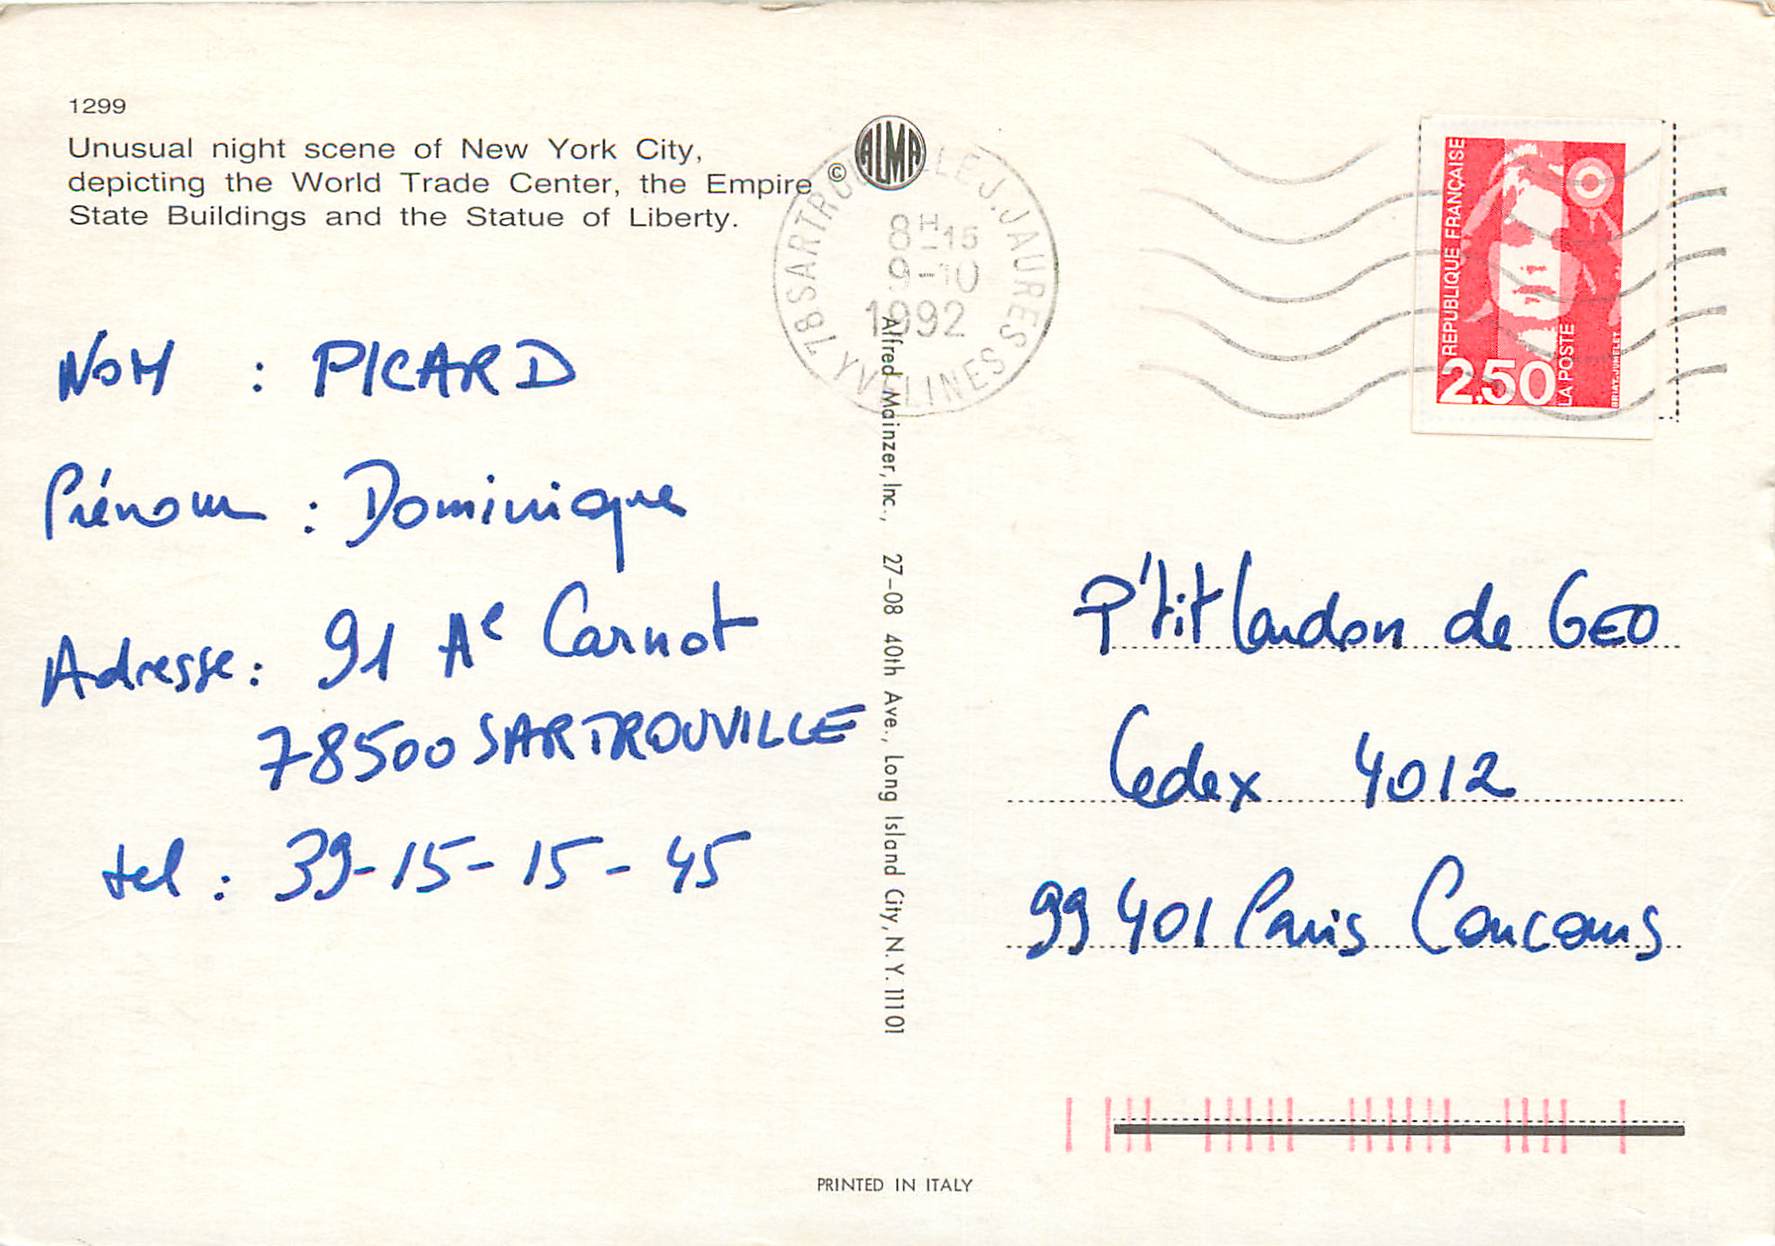 1299
Unusual night scene of New York City,
depicting the World Trade Center, the Empire
State Buildings and the Statue of Liberty.
© ALMA
78 SARTROUVILLE J. JAURES
8H15
9-10
1992
YVELINES
REPUBLIQUE FRANÇAISE
2,50
LA POSTE
BRIAT-JUMELET
NOM : PICARD
Prénom : Dominique
Adresse : 91 Ae Carnot
78500 SARTROUVILLE
tel : 39-15-15-45
Alfred Mainzer, Inc., 27-08 40th Ave., Long Island City, N.Y. 11101
P'tit Loudon de GEO
Cedex 4012
99401 Paris Concours
PRINTED IN ITALY